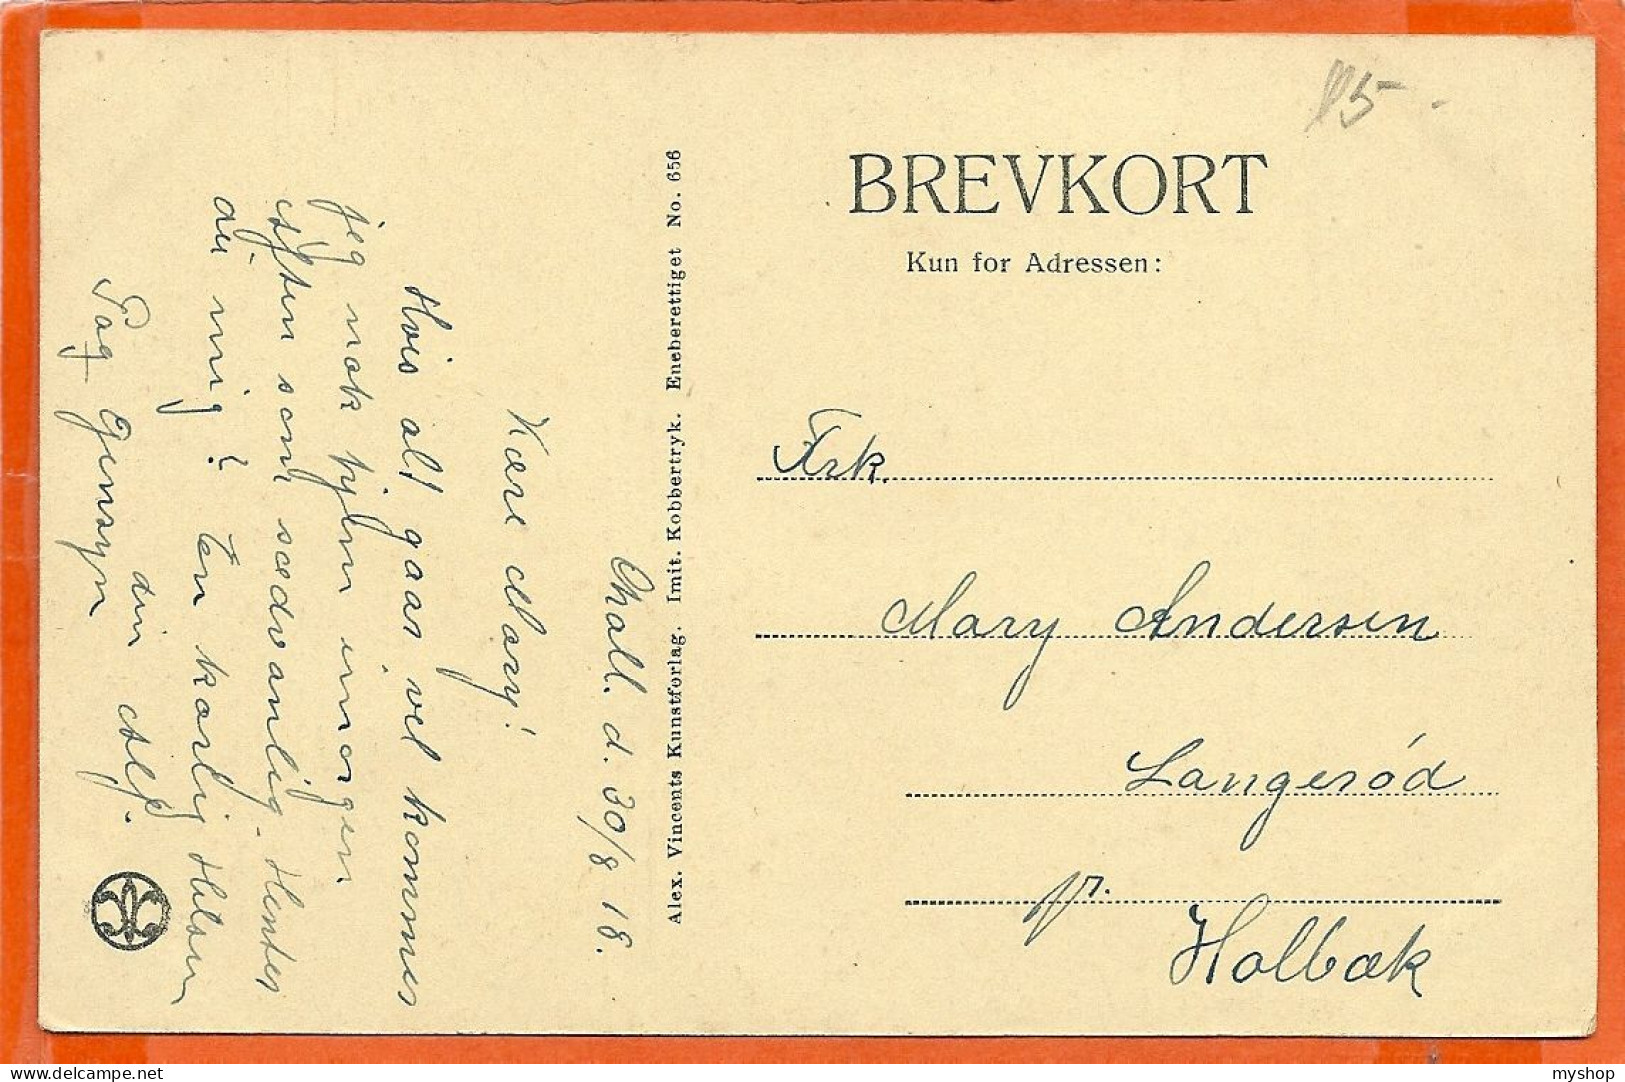 BREVKORT
Kun for Adressen:
Frk.
Mary Andersen
Langerød
pr.
Holbæk
Alex. Vincents Kunstforlag. Imit. Kobbertryk. Eneberettiget No. 656
d. 30/8. 18.
Kære Mary!
Hvis alt gaar vel kommer
jeg nok hjem imorgen
Aften som sædvanlig. Henter
du mig? En kærlig Hilsen
Paa Gensyn
din Alf.
delcampe.net
myshop